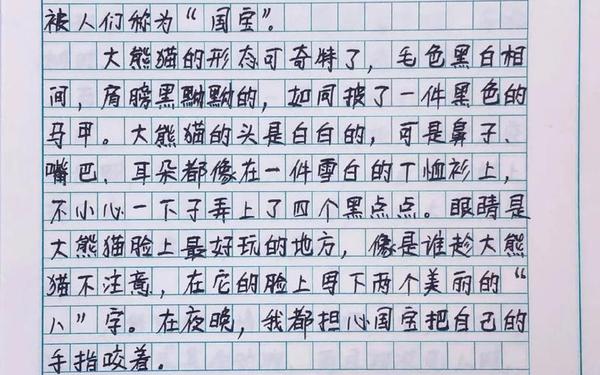 被人们称为“国宝”。
大熊猫的形态可奇特了，毛色黑白相
间，肩膀黑黝黝的，如同披了一件黑色的
马甲。大熊猫的头是白白的，可是鼻子、
嘴巴、耳朵都像在一件雪白的T恤衫上，
不小心一下子弄上了四个黑点点。眼睛是
大熊猫脸上最好玩的地方，像是谁趁大熊
猫不注意，在它的脸上写下两个美丽的“
八”字。在夜晚，我都担心国宝把自己的
手指咬着。